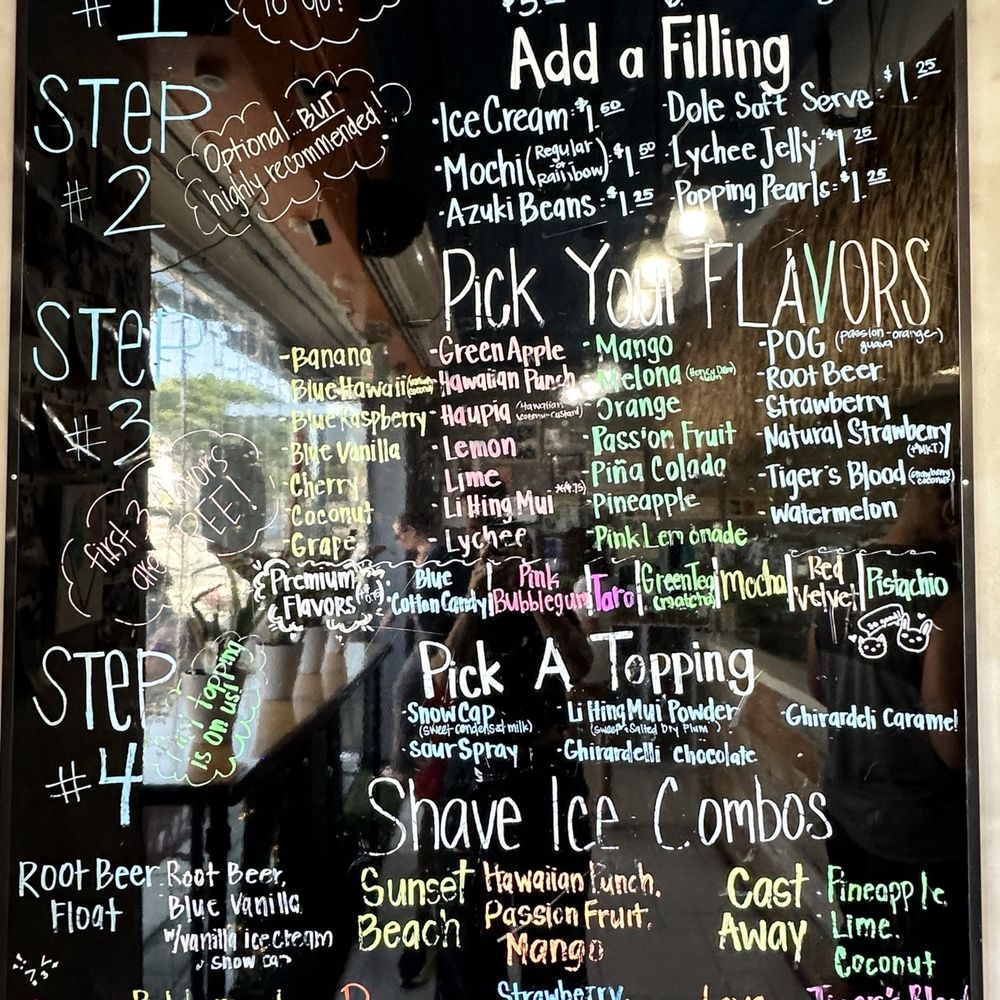 #1
TO GO!
$5.
Add a Filling
STEP
#2
Optional...BUT
highly recommended!
·Ice Cream: $1.50
·Mochi (Regular or Rainbow) $1.50
·Azuki Beans: $1.25
·Dole Soft Serve: $1.25
·Lychee Jelly: $1.25
·Popping Pearls: $1.25
Pick Your FLAVORS
STEP
#3
first 3 flavors
are FREE!
-Banana
-Blue Hawaii
-Blue Raspberry
-Blue Vanilla
-Cherry
-Coconut
-Grape
-Green Apple
-Hawaiian Punch
-Haupia (Hawaiian coconut-custard)
-Lemon
-Lime
-Li Hing Mui *(+.75)
-Lychee
-Mango
-Melona (Honey Dew Melon)
-Orange
-Passion Fruit
-Piña Colada
-Pineapple
-Pink Lemonade
-POG (passion-orange-guava)
-Root Beer
-Strawberry
-Natural Strawberry
(+MKT)
-Tiger's Blood (strawberry coconut)
-Watermelon
Premium
Flavors
Blue
Cotton Candy
Pink
Bubblegum
Taro
Green Tea
(matcha)
Mocha
Red
Velvet
Pistachio
So good!
STEP
#4
topping
is on us!
Pick A Topping
·Snow Cap
(sweet condensed milk)
·Sour Spray
·Li Hing Mui Powder
(sweet & salted Dry Plum)
·Ghirardelli chocolate
·Ghirardeli Caramel
Shave Ice Combos
Root Beer
Float
·Root Beer,
Blue Vanilla
w/vanilla ice cream
& snow cap
Sunset
Beach
Hawaiian Punch,
Passion Fruit,
Mango
Cast
Away
·Pineapple,
Lime,
Coconut
Strawberry,
Tiger's Blood